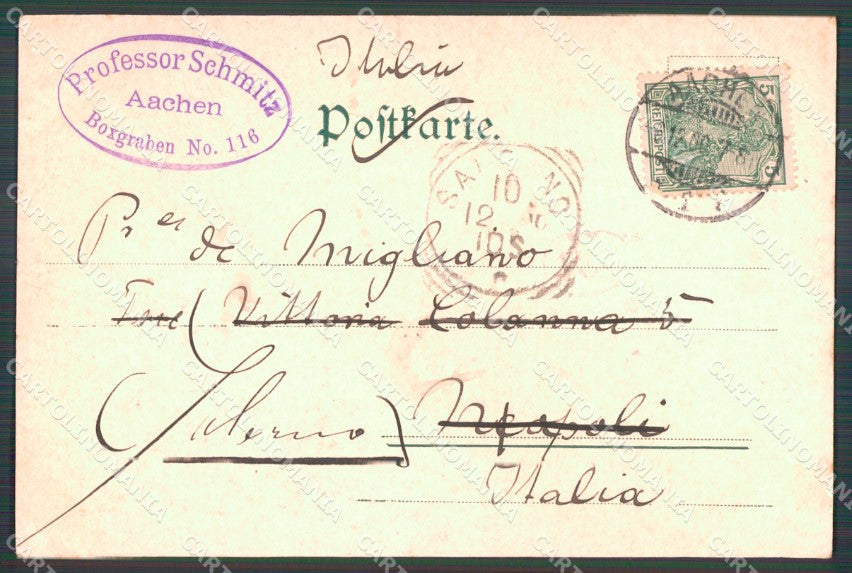 Professor Schmitz
Aachen
Boxgraben No. 116
Italia
Postkarte.
5 5
SALERNO
10
12
Pr de Migliano
Vittoria Colonna 5
(Salerno) Neapoli
Italia
CARTOLINOMANIA